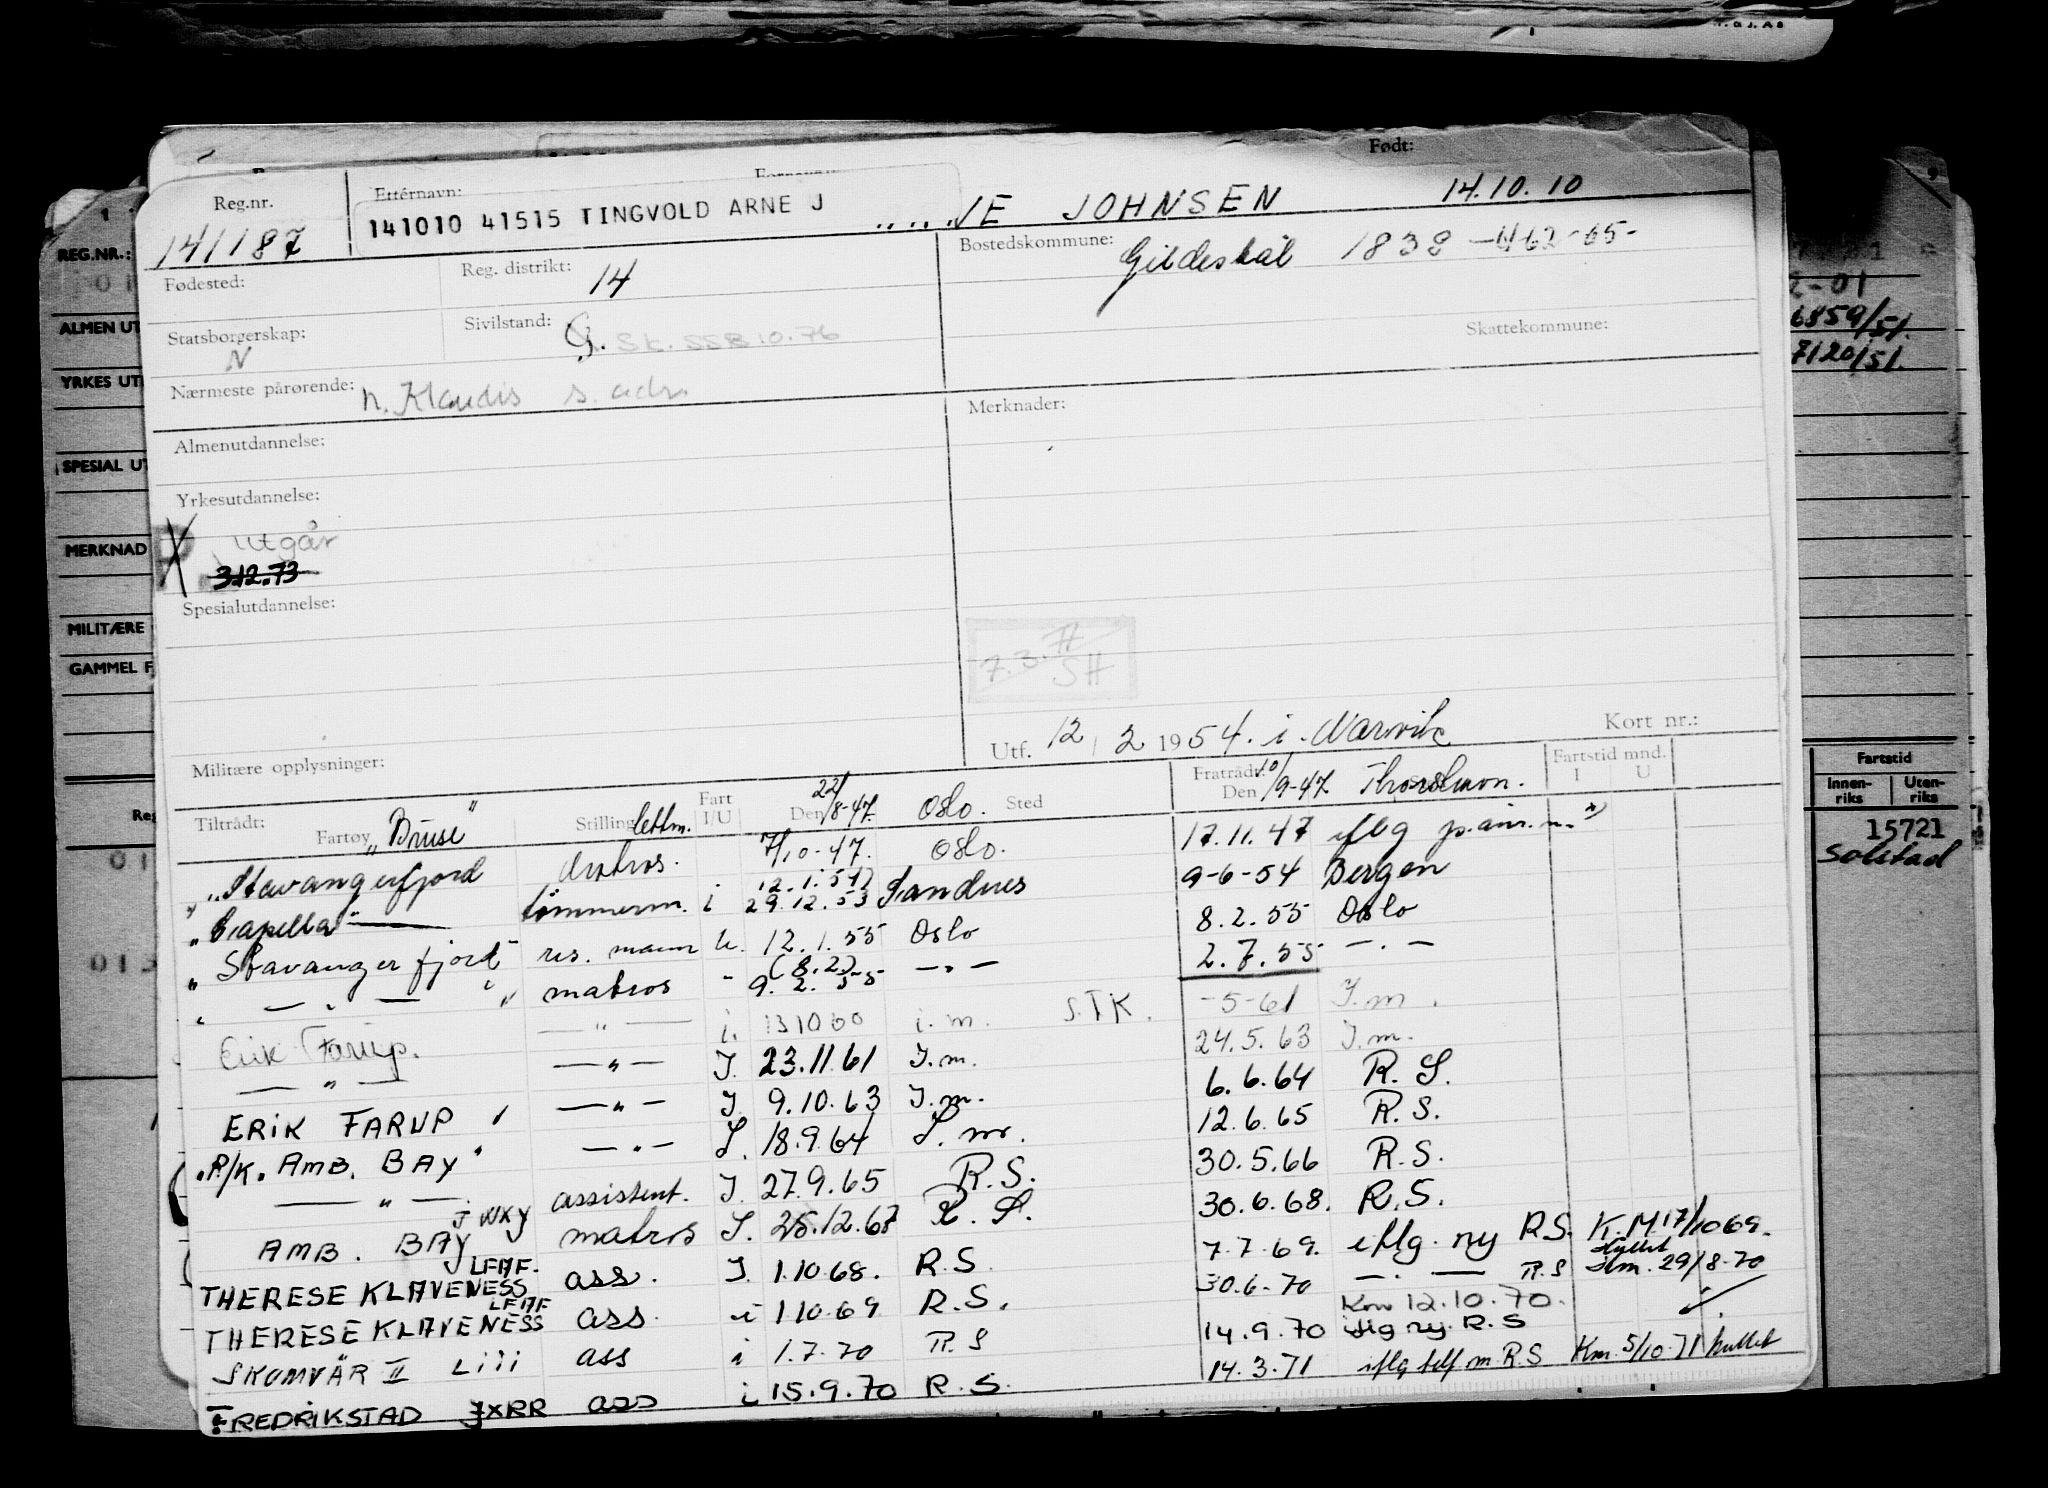 Født:
Reg.nr. Etternavn:
141187 141010 41515 TINGVOLD ARNE J NE JOHNSEN 14.10.10
Fødested: Reg. distrikt: 14 Bostedskommune: Gildeskål 1838-462-05-
Statsborgerskap: N Sivilstand: G. Sk. SSB 10.76 Skattekommune:
Nærmeste pårørende: h. Klaudis s. adr.
Merknader:
Almenutdannelse:
Yrkesutdannelse:
Utgår
312.73
Spesialutdannelse:
7.3.71
SH
Utf. 12/2 1954. i. Narvik Kort nr.:
Militære opplysninger:
Tiltrådt: Fartøy Stilling Fart I/U Den Sted Fratrådt: Den Fartstid mnd. I U
"Bruse" lettm. 22/8-47. Oslo. 10/9-47
"Stavangerfjord matros. 7/10-47. Oslo. 17.11.47 iflg
"Capella" tømmerm. i 12.1.54) 29.12.53 Sandnes 9-6-54 Bergen
"Stavangerfjord" res. mann u. 12.1.55 Oslo 8.2.55 Oslo
" — " — " matros " (8.2) 9.2.55 — " — 2.7.55 — . —
Erik Farup. — " — i. 131060 i. m. S.T.K. -5-61 I.m.
— " — — " — I. 23.11.61 I.m. 24.5.63 I.m.
ERIK FARUP — " — I. 9.10.63 I.m. 6.6.64 R.S.
"R/K. AMB. BAY" — " — I. 18.9.64 12.6.65 R.S.
— " — assistent. I. 27.9.65 R.S. 30.5.66 R.S.
AMB. BAY JWXY matros I. 12.67 R.S. 30.6.68. R.S.
THERESE KLAVENESS LEAF. ass. I. 1.10.68. R.S. 7.7.69. iflg. ny R.S. K.M 17/10 69.
THERESE KLAVENESS LEAF ass. i 1.10.69 R.S. 30.6-70 — . — R.S 29/8-70
SKOMVÄR II LIII ass i 1.7.70 R.S 14.9.70 iflg ny. R.S Km 12.10.70.
FREDRIKSTAD JXRR ass i 15.9.70 R.S. 14.3.71 iflg tlf m R.S Km. 5/10-71 hullet
REG.NR.:
ALMEN UT
YRKES UT
SPESIAL UT
MERKNAD
MILITÆRE
GAMMEL F
Reg
2-01
6859/51.
7120/51.
Fartstid
Innen-riks Uten-riks
15721
Solstad